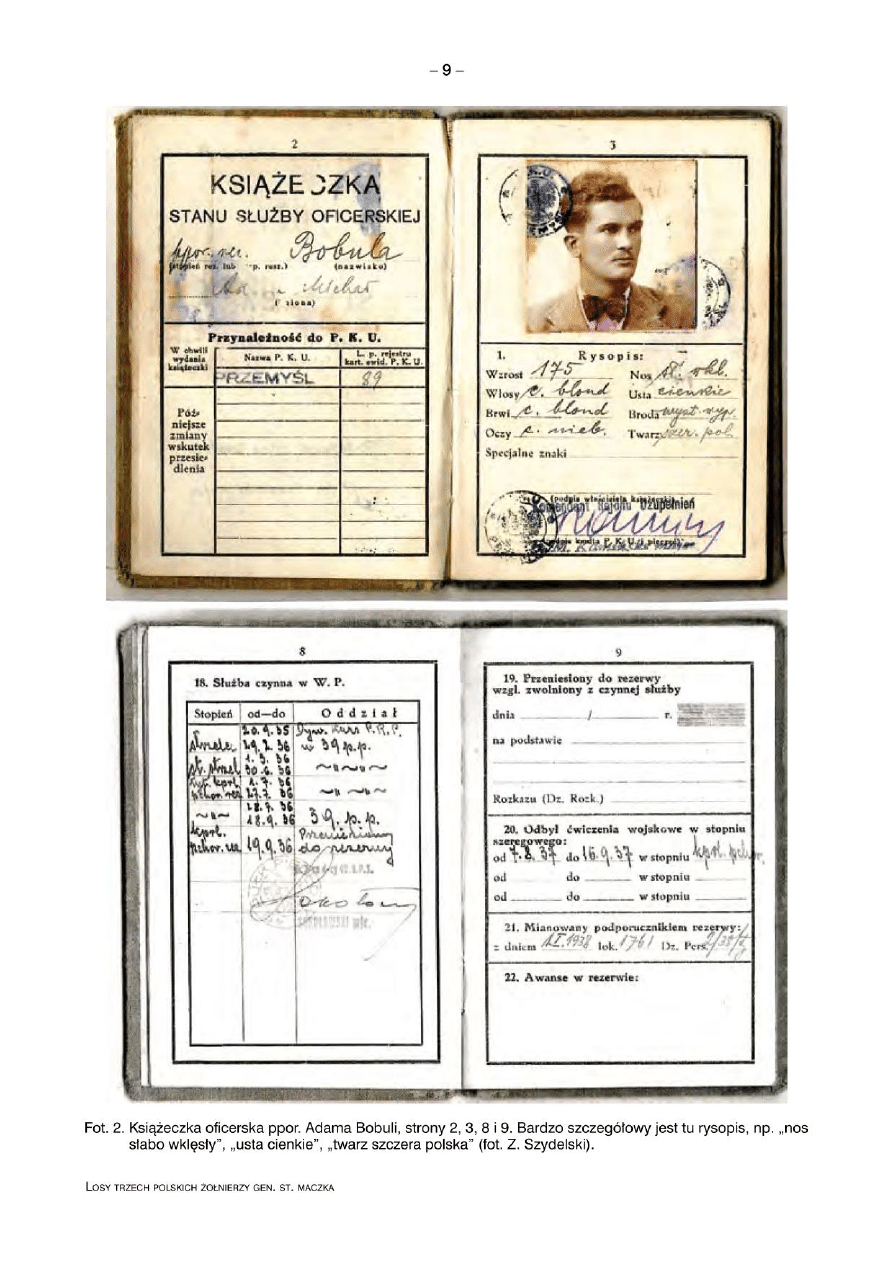 – 9 –
2
KSIĄŻECZKA
STANU SŁUŻBY OFICERSKIEJ
ppor. rez. Bobula
(stopień rez. lub sp. rusz.) (nazwisko)
Michał
Przynależność do P. K. U.
W chwili wydania książeczki
Nazwa P. K. U.
L. p. rejestru kart. ewid. P. K. U.
PRZEMYŚL 89
Póź-
niejsze
zmiany
wskutek
przesie-
dlenia
3
1. Rysopis:
Wzrost 175 Nos sł. wkl.
Włosy c. blond Usta cienkie
Brwi c. blond Broda wyst. wyp.
Oczy c. nieb. Twarz szcz. pol.
Specjalne znaki
(podpis właściciela książeczki)
Komendant Rejonu Uzupełnień
8
18. Służba czynna w W. P.
Stopień od—do Oddział
20.9.35 Dyw. Kurs P.R.P.
strzelec 29.2.36 w 39 p.p.
1.3.36
st. strzel. 30.6.36
1.7.36
17.7.36
18.7.36
18.9.36 39. p. p.
kprl. Przeniesiony
pchor. rez. 19.9.36 do rezerwy
9
19. Przeniesiony do rezerwy
wzgl. zwolniony z czynnej służby
dnia / r.
na podstawie
Rozkazu (Dz. Rozk.)
20. Odbył ćwiczenia wojskowe w stopniu
szeregowego:
od 7.8.37 do 16.9.37 w stopniu kprl. pchor.
od do w stopniu
od do w stopniu
21. Mianowany podporucznikiem rezerwy:
z dniem 1.I.1938 lok. 1761 Dz. Pers.
22. Awanse w rezerwie:
Fot. 2. Książeczka oficerska ppor. Adama Bobuli, strony 2, 3, 8 i 9. Bardzo szczegółowy jest tu rysopis, np. „nos
słabo wklęsły”, „usta cienkie”, „twarz szczera polska” (fot. Z. Szydelski).
LOSY TRZECH POLSKICH ŻOŁNIERZY GEN. ST. MACZKA